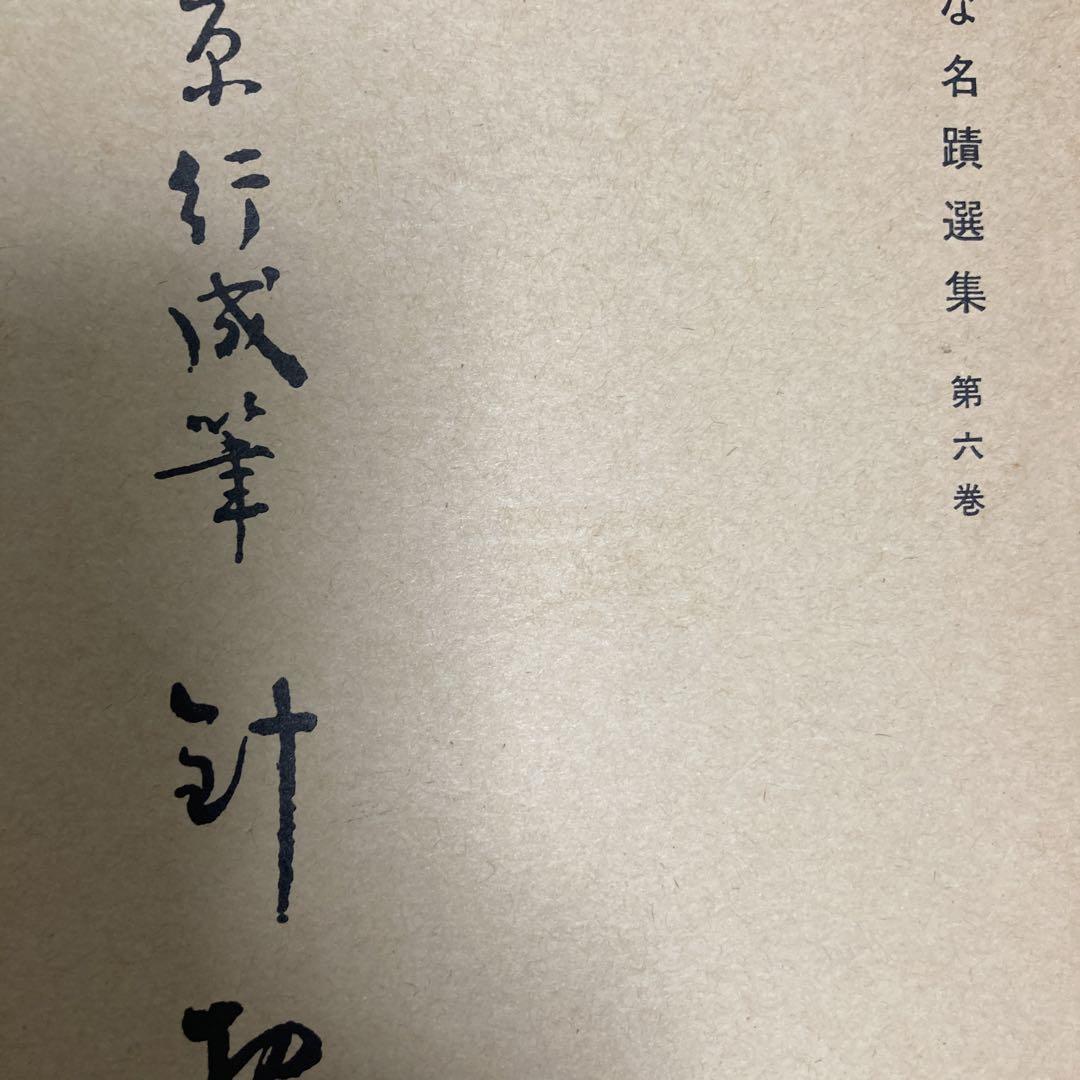 な名蹟選集 第六巻
原行成筆 針切